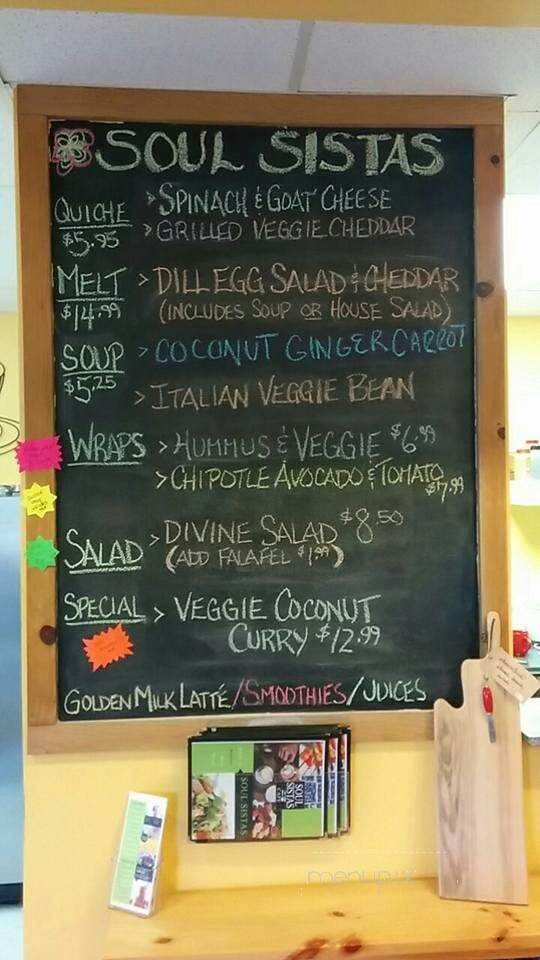 SOUL SISTAS
QUICHE > SPINACH & GOAT CHEESE
$5.95 > GRILLED VEGGIE CHEDDAR
MELT > DILL EGG SALAD & CHEDDAR
$14.99 (INCLUDES SOUP OR HOUSE SALAD)
SOUP > COCONUT GINGER CARROT
$5.25
> ITALIAN VEGGIE BEAN
WRAPS > HUMMUS & VEGGIE $6.99
> CHIPOTLE AVOCADO & TOMATO
$7.99
SALAD > DIVINE SALAD $8.50
(ADD FALAFEL $1.99)
SPECIAL > VEGGIE COCONUT
CURRY $12.99
GOLDEN MILK LATTÉ/SMOOTHIES/JUICES
SOUL SISTAS
SOUL SISTAS
menupix